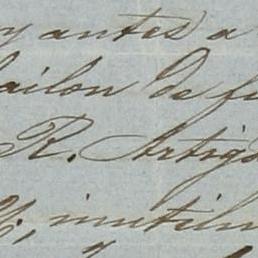 y antes a
ailon de fu
R. Artig
inutil